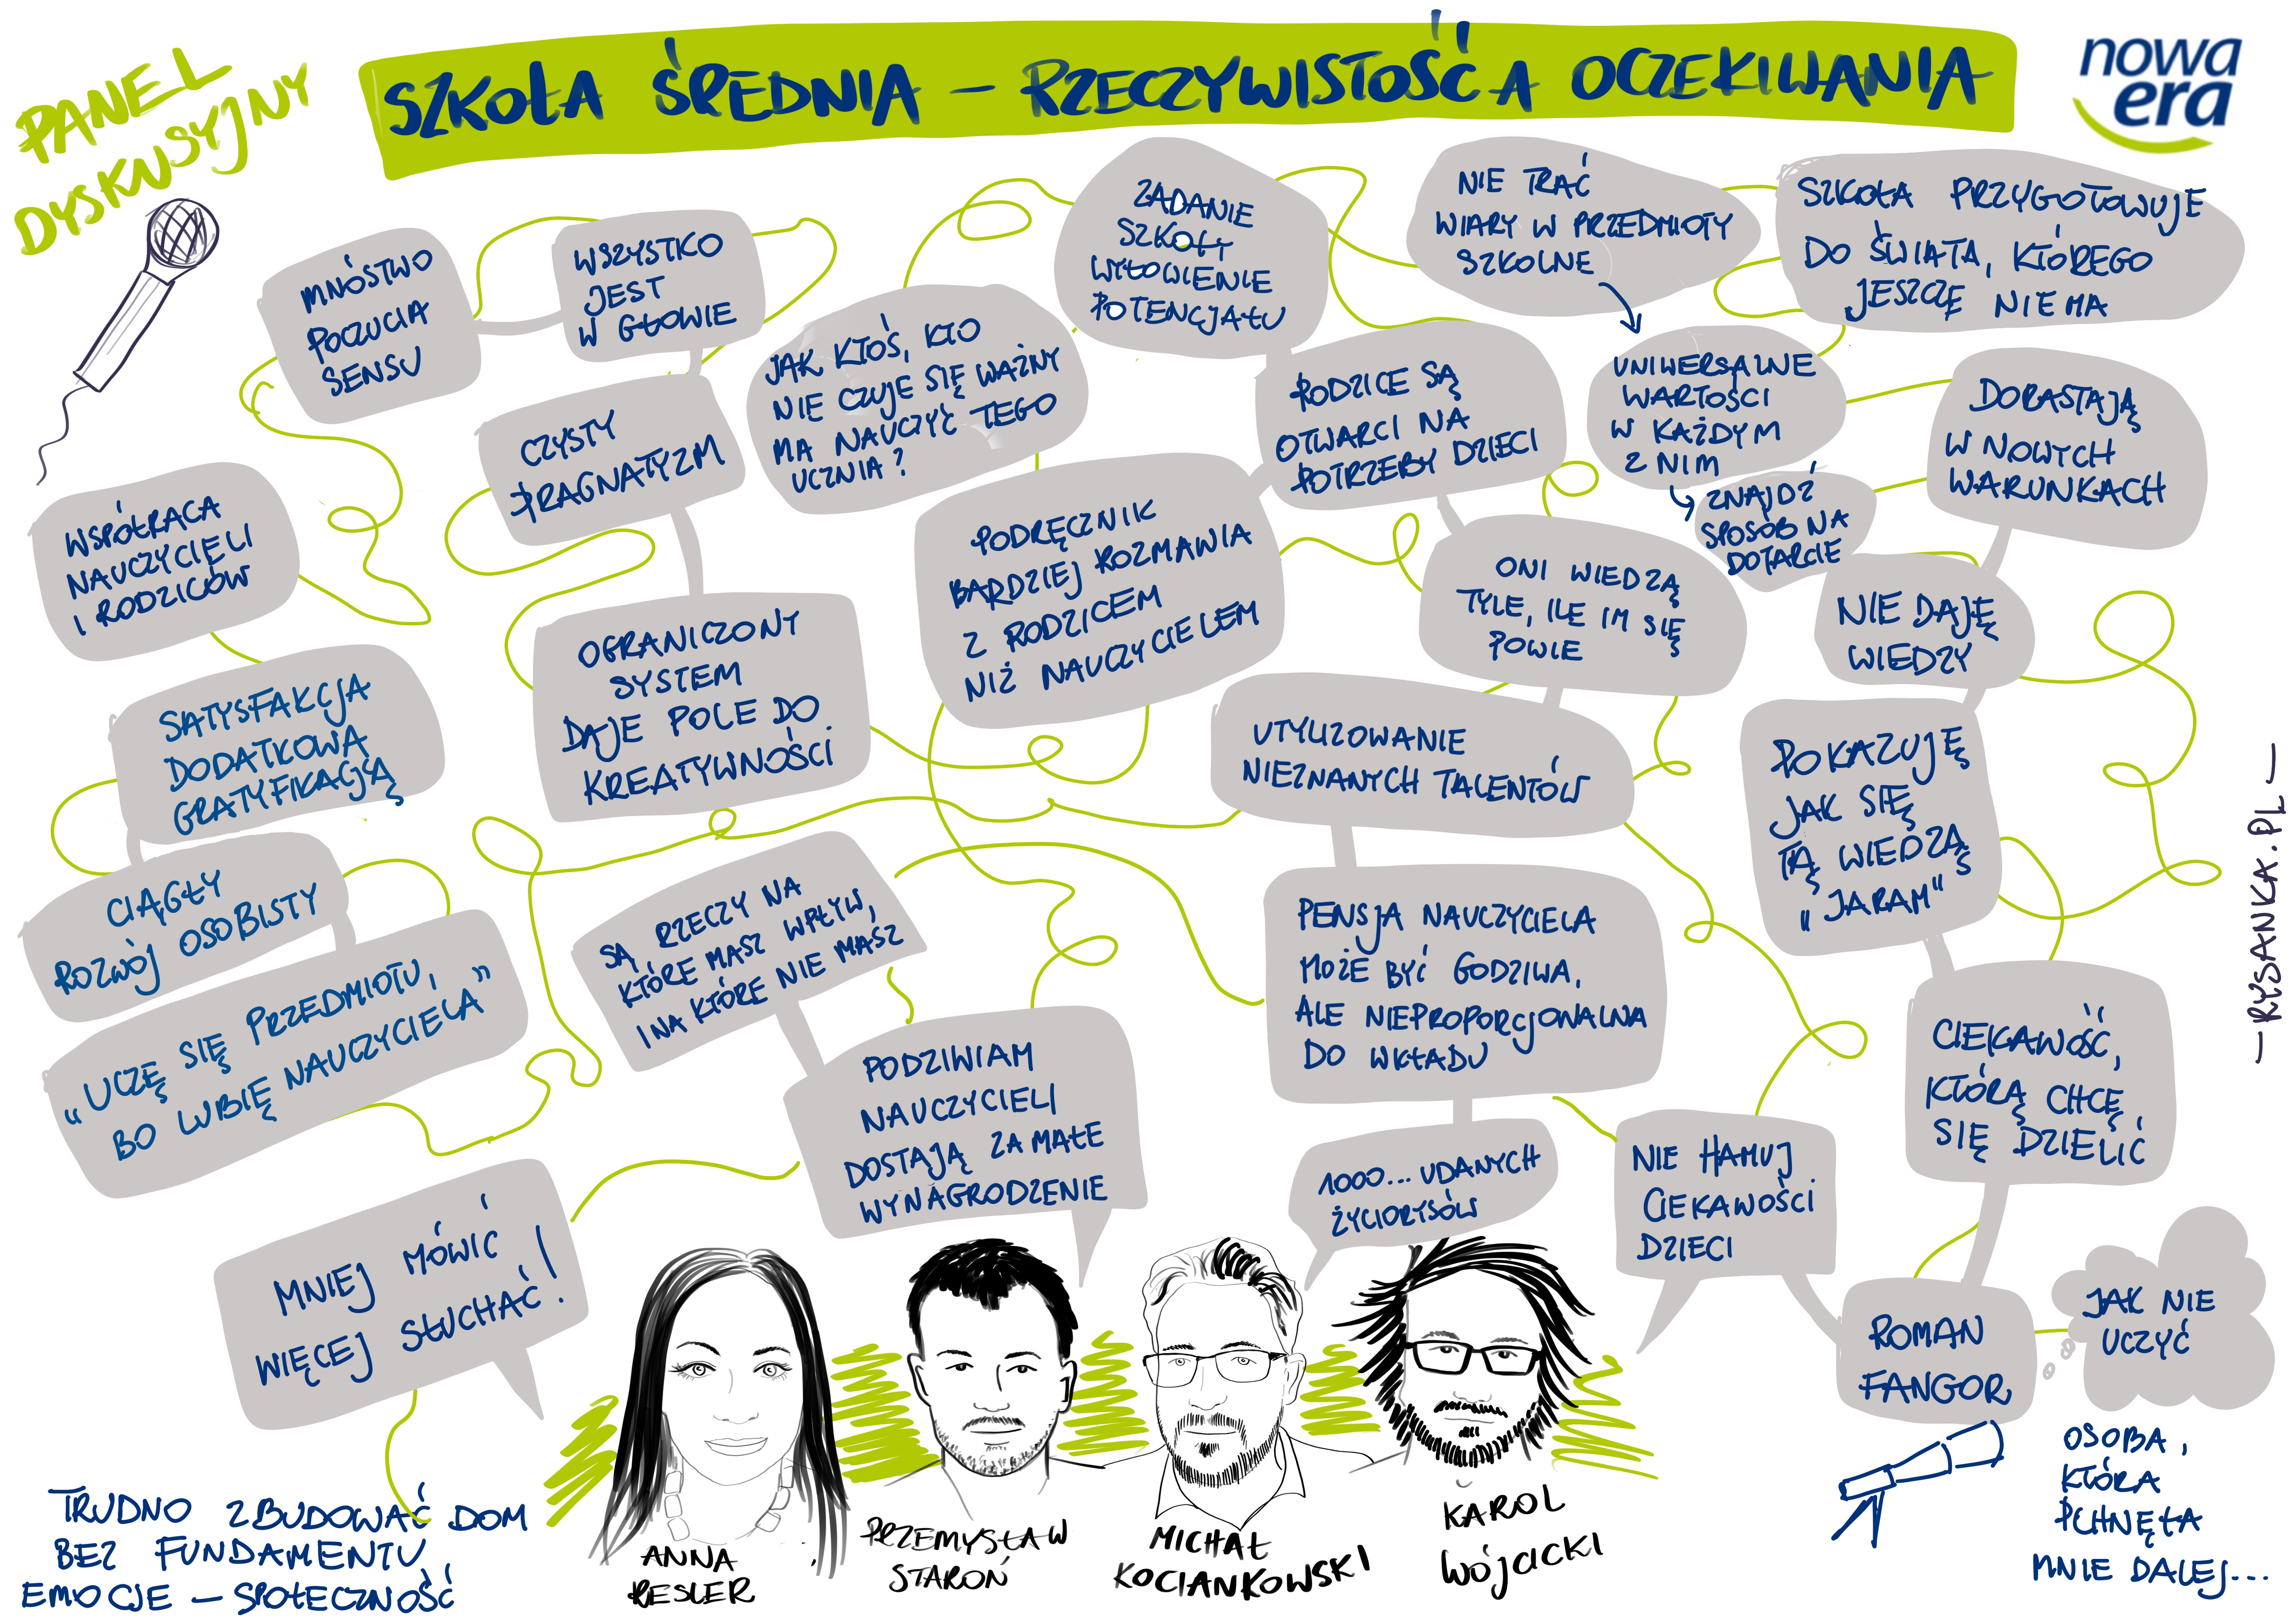 PANEL
DYSKUSYJNY
SZKOŁA ŚREDNIA – RZECZYWISTOŚĆ A OCZEKIWANIA
nowa
era
MNÓSTWO
POCZUCIA
SENSU
WSZYSTKO
JEST
W GŁOWIE
CZYSTY
PRAGNATYZM
JAK KTOŚ, KTO
NIE CZUJE SIĘ WAŻNY
MA NAUCZYĆ TEGO
UCZNIA?
ZADANIE
SZKOŁY
WYŁOWIENIE
POTENCJAŁU
NIE TRAĆ
WIARY W PRZEDMIOTY
SZKOLNE
SZKOŁA PRZYGOTOWUJE
DO ŚWIATA, KTÓREGO
JESZCZĘ NIE MA
RODZICE SĄ
OTWARCI NA
POTRZEBY DZIECI
UNIWERSALNE
WARTOŚCI
W KAŻDYM
Z NIM
ZNAJDŹ
SPOSÓB NA
DOTARCIE
DORASTAJĄ
W NOWYCH
WARUNKACH
WSPÓŁRACA
NAUCZYCIELI
I RODZICÓW
PODRĘCZNIK
BARDZIEJ ROZMAWIA
Z RODZICEM
NIŻ NAUCZYCIELEM
ONI WIEDZĄ
TYLE, ILE IM SIĘ
POWIE
NIE DAJĘ
WIEDZY
OGRANICZONY
SYSTEM
DAJE POLE DO
KREATYWNOŚCI
SATYSFAKCJA
DODATKOWĄ
GRATYFIKACJĄ
UTYLIZOWANIE
NIEZNANYCH TALENTÓW
POKAZUJĘ
JAK SIĘ
TĄ WIEDZĄ
„JARAM”
CIĄGŁY
ROZWÓJ OSOBISTY
SĄ RZECZY NA
KTÓRE MASZ WPŁYW,
I NA KTÓRE NIE MASZ
PENSJA NAUCZYCIELA
MOŻE BYĆ GODZIWA,
ALE NIEPROPORCJONALNA
DO WKŁADU
„UCZĘ SIĘ PRZEDMIOTU,
BO LUBIĘ NAUCZYCIELA”
PODZIWIAM
NAUCZYCIELI
DOSTAJĄ ZA MAŁE
WYNAGRODZENIE
CIEKAWOŚĆ,
KTÓRĄ CHCĘ
SIĘ DZIELIĆ
1000... UDANYCH
ŻYCIORYSÓW
NIE HAMUJ
CIEKAWOŚCI
DZIECI
MNIEJ MÓWIĆ
WIĘCEJ SŁUCHAĆ!
ROMAN
FANGOR
JAK NIE
UCZYĆ
OSOBA,
KTÓRA
PCHNĘŁA
MNIE DALEJ...
TRUDNO ZBUDOWAĆ DOM
BEZ FUNDAMENTU
EMOCJE – SPOŁECZNOŚĆ
ANNA
RESLER
PRZEMYSŁAW
STAROŃ
MICHAŁ
KOCIANKOWSKI
KAROL
WÓJCICKI
—RYSANKA.PL—